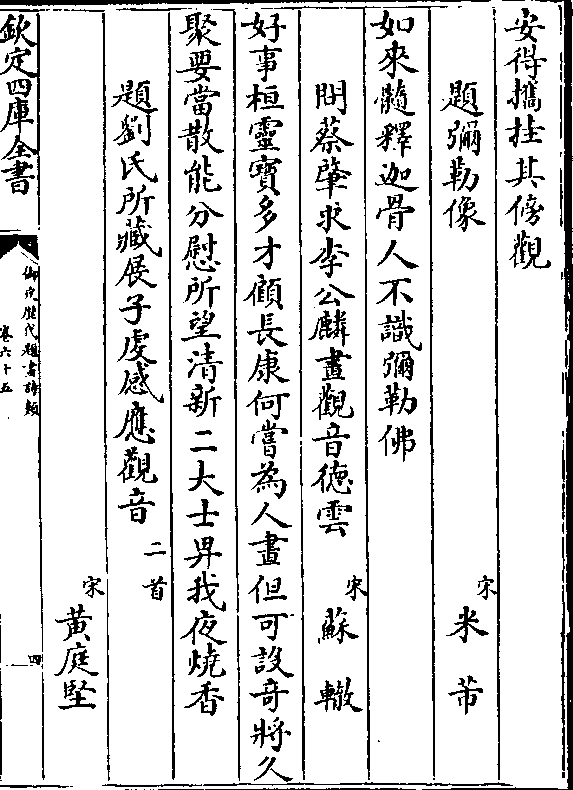 安得攜挂其傍觀
題彌勒像
宋 米芾
如來髓釋迦骨人不識彌勒佛
問蔡肇求李公麟畫觀音德雲
宋 蘇轍
好事桓靈寶多才顧長康何嘗為人畫但可設奇將久
聚要當散能分慰所望清新二大士畀我夜燒香
題劉氏所藏展子虔感應觀音 二首
宋 黃庭堅
欽定四庫全書
御定歷代題畫詩類
卷六十五
四